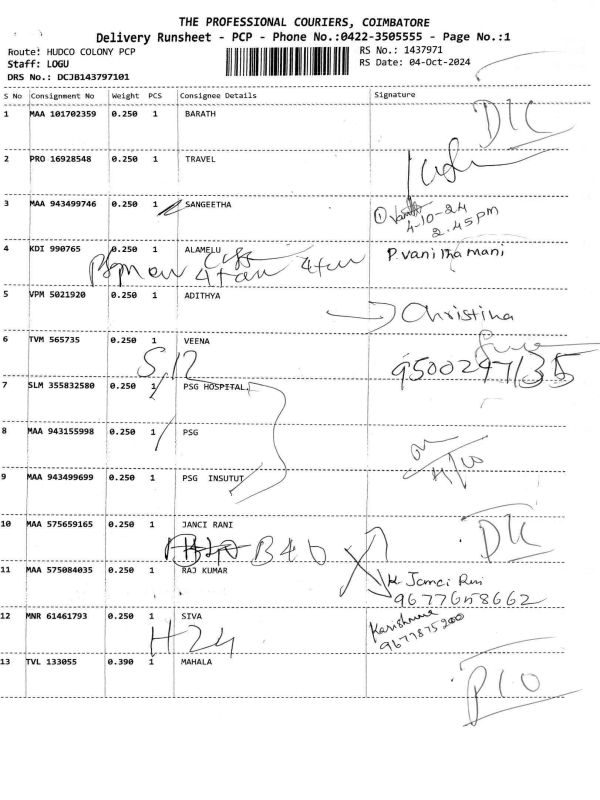 THE PROFESSIONAL COURIERS, COIMBATORE
Delivery Runsheet - PCP - Phone No.:0422-3505555 - Page No.:1
Route: HUDCO COLONY PCP RS No.: 1437971
Staff: LOGU RS Date: 04-Oct-2024
DRS No.: DCJB143797101
S No Consignment No Weight PCS Consignee Details Signature
1 MAA 101702359 0.250 1 BARATH
2 PRO 16928548 0.250 1 TRAVEL
3 MAA 943499746 0.250 1 SANGEETHA
4-10-24
2.45pm
4 KDI 990765 0.250 1 ALAMELU P.vanithamani
5 VPM 5021920 0.250 1 ADITHYA
Christina
6 TVM 565735 0.250 1 VEENA
9500297135
7 SLM 355832580 0.250 1 PSG HOSPITAL.
8 MAA 943155998 0.250 1 PSG
9 MAA 943499699 0.250 1 PSG INSUTUT
10 MAA 575659165 0.250 1 JANCI RANI
B40
11 MAA 575084035 0.250 1 RAJ KUMAR
9677658662
12 MNR 61461793 0.250 1 SIVA
Karishma
9677875200
H24
13 TVL 133055 0.390 1 MAHALA